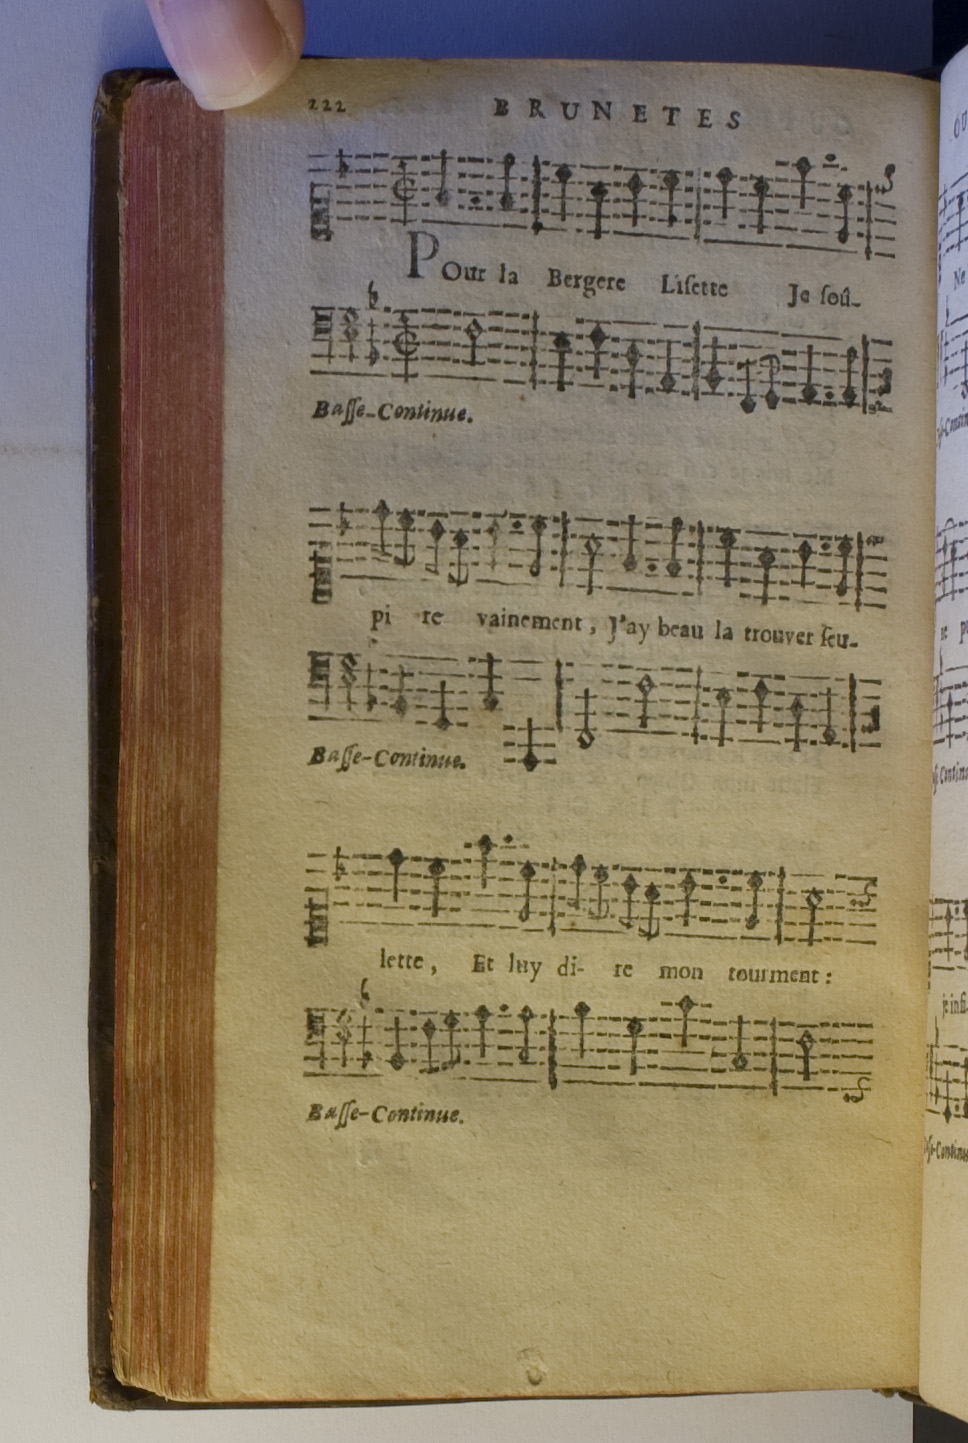 222 BRUNETES
POur la Bergere Lisette Je soû-
Basse-Continue.
pi re vainement, J'ay beau la trouver seu-
Basse-Continue.
lette, Et luy di- re mon tourment:
Basse-Continue.